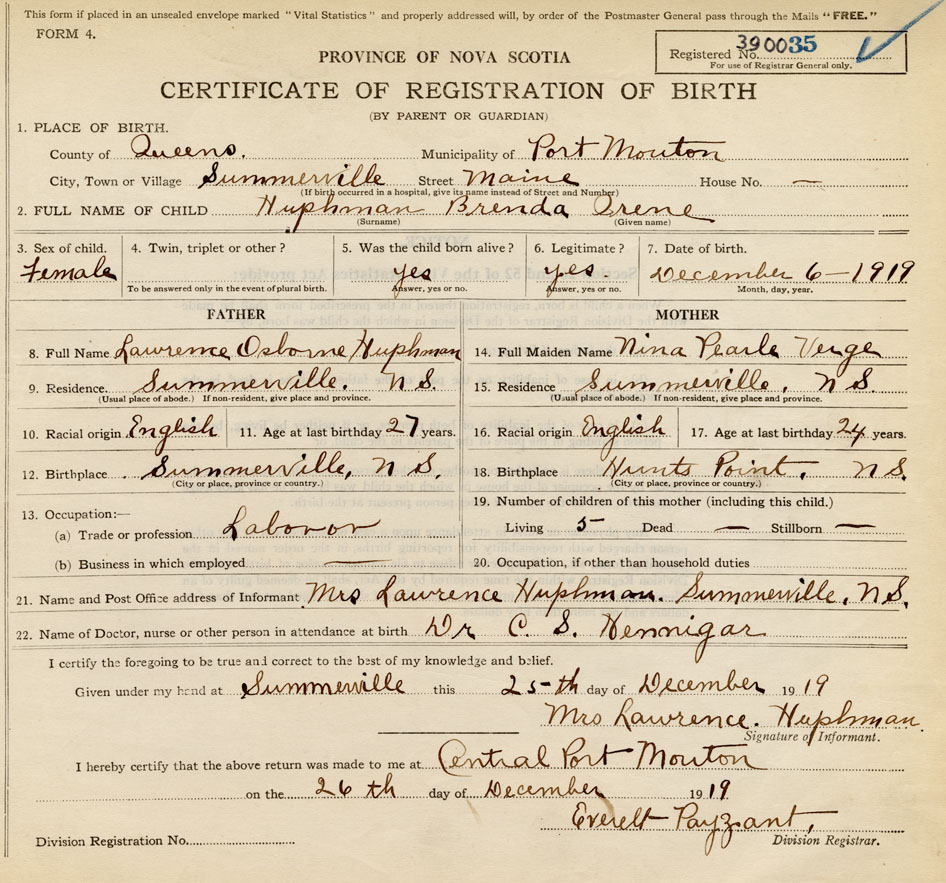 This form if placed in an unsealed envelope marked "Vital Statistics" and properly addressed will, by order of the Postmaster General pass through the Mails "FREE."
FORM 4.
Registered No. 390035
For use of Registrar General only.
PROVINCE OF NOVA SCOTIA
CERTIFICATE OF REGISTRATION OF BIRTH
(BY PARENT OR GUARDIAN)
1. PLACE OF BIRTH.
County of Queens. Municipality of Port Mouton
City, Town or Village Summerville Street Maine House No. —
(If birth occurred in a hospital, give its name instead of Street and Number)
2. FULL NAME OF CHILD Huphman Brenda Irene
(Surname) (Given name)
3. Sex of child. 4. Twin, triplet or other? 5. Was the child born alive? 6. Legitimate? 7. Date of birth.
Female yes yes. December 6—1919
To be answered only in the event of plural birth. Answer, yes or no. Answer, yes or no. Month, day, year.
FATHER MOTHER
8. Full Name Lawrence Osborne Huphman 14. Full Maiden Name Nina Pearle Verge
9. Residence. Summerville. N S. 15. Residence Summerville, N S.
(Usual place of abode.) If non-resident, give place and province. (Usual place of abode.) If non-resident, give place and province.
10. Racial origin English 11. Age at last birthday 27 years. 16. Racial origin English 17. Age at last birthday 24 years.
12. Birthplace Summerville, N S. 18. Birthplace Hunts Point, N S.
(City or place, province or country.) (City or place, province or country.)
13. Occupation:— 19. Number of children of this mother (including this child.)
(a) Trade or profession Laboror Living 5 Dead — Stillborn —
(b) Business in which employed — 20. Occupation, if other than household duties
21. Name and Post Office address of Informant Mrs Lawrence Huphman. Summerville, N S.
22. Name of Doctor, nurse or other person in attendance at birth Dr C. S. Hennigar
I certify the foregoing to be true and correct to the best of my knowledge and belief.
Given under my hand at Summerville this 25-th day of December 1919
Mrs Lawrence. Huphman
Signature of Informant.
I hereby certify that the above return was made to me at Central Port Mouton
on the 26 th day of December 1919
Everett Payzant,
Division Registration No. Division Registrar.